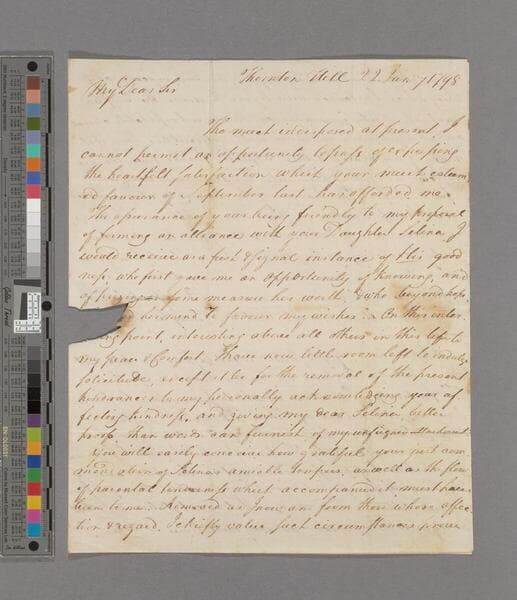 Thornton Hill 22 Jan.y 1798
My Dear Sir
Tho much indisposed at present, I
cannot permit an opportunity to pass of expressing
the heartfelt satisfaction which your much esteem
ed favour of September last has afforded me.
The assurance of your being friendly to my proposal
of forming an alliance with your Daughter Selina I
would receive as a first & signal instance of His good
ness, who first gave me an opportunity of knowing, and
of some measure her worth, & who beyond hope
to favour my wishes. On this inter
ing point, interesting above all others in this life to
my peace & comfort, I have now little room left to indulge
solicitude, except it be for the removal of the present
hindrances to my personally acknowledging your af
fecting kindness, and giving my dear Selina better
proof than words can furnish of my unfeigned attachment.
You will easily conceive how grateful your just com
mendation of Selina's amiable temper, as well as the flow
of parental tenderness which accompanied it must have
been to me. Removed as you are from those whose affec
tion & regard chiefly value such circumstances prove